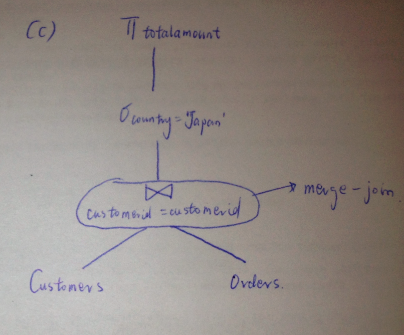 (c) π totalamount
σ country='Japan'
⋈
customerid = customerid
merge-join.
Customers
Orders.